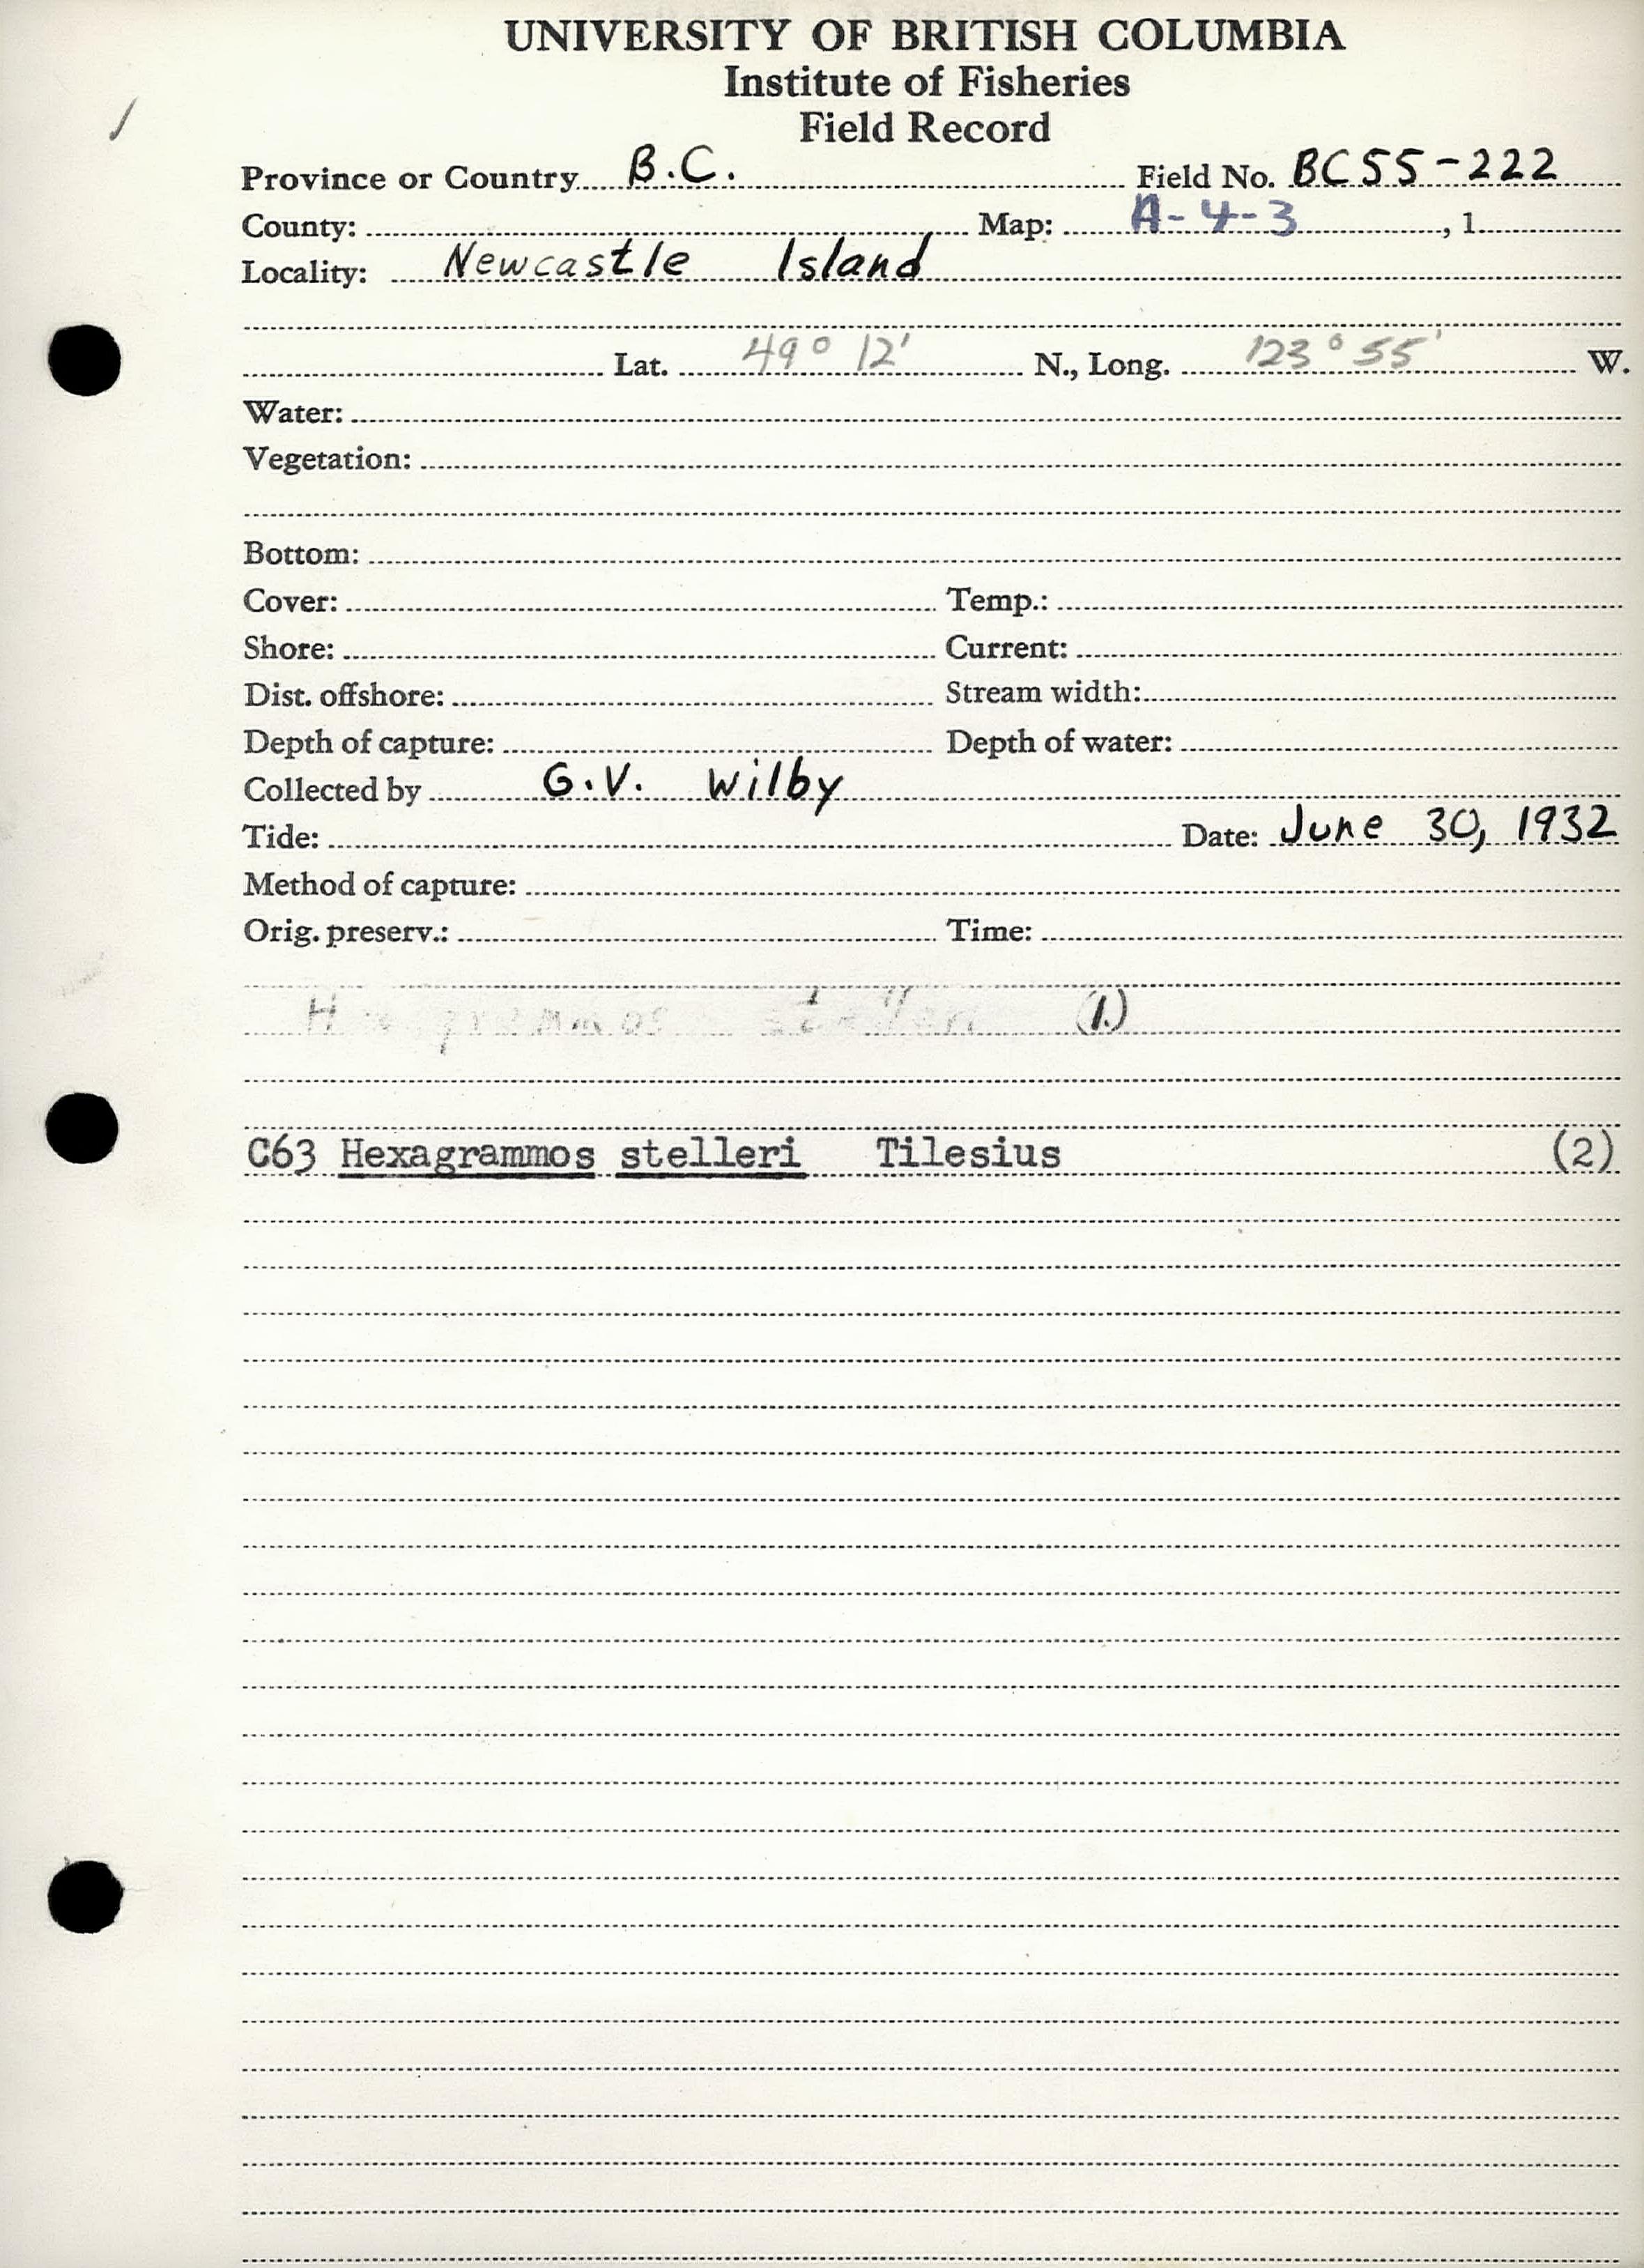 UNIVERSITY OF BRITISH COLUMBIA
Institute of Fisheries
Field Record
Province or Country B.C. Field No. BC55-222
County: Map: A-4-3, 1
Locality: Newcastle Island
Lat. 49° 12' N., Long. 123° 55' W.
Water:
Vegetation:
Bottom:
Cover: Temp.:
Shore: Current:
Dist. offshore: Stream width:
Depth of capture: Depth of water:
Collected by G.V. Wilby
Tide: Date: June 30, 1932
Method of capture:
Orig. preserv.: Time:
(1.)
C63 Hexagrammos stelleri Tilesius (2)